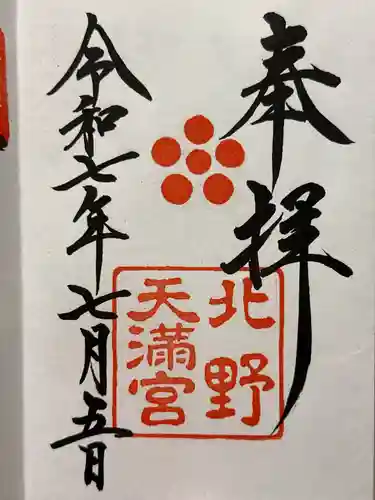 奉拝
北野
天満宮
令和七年七月五日